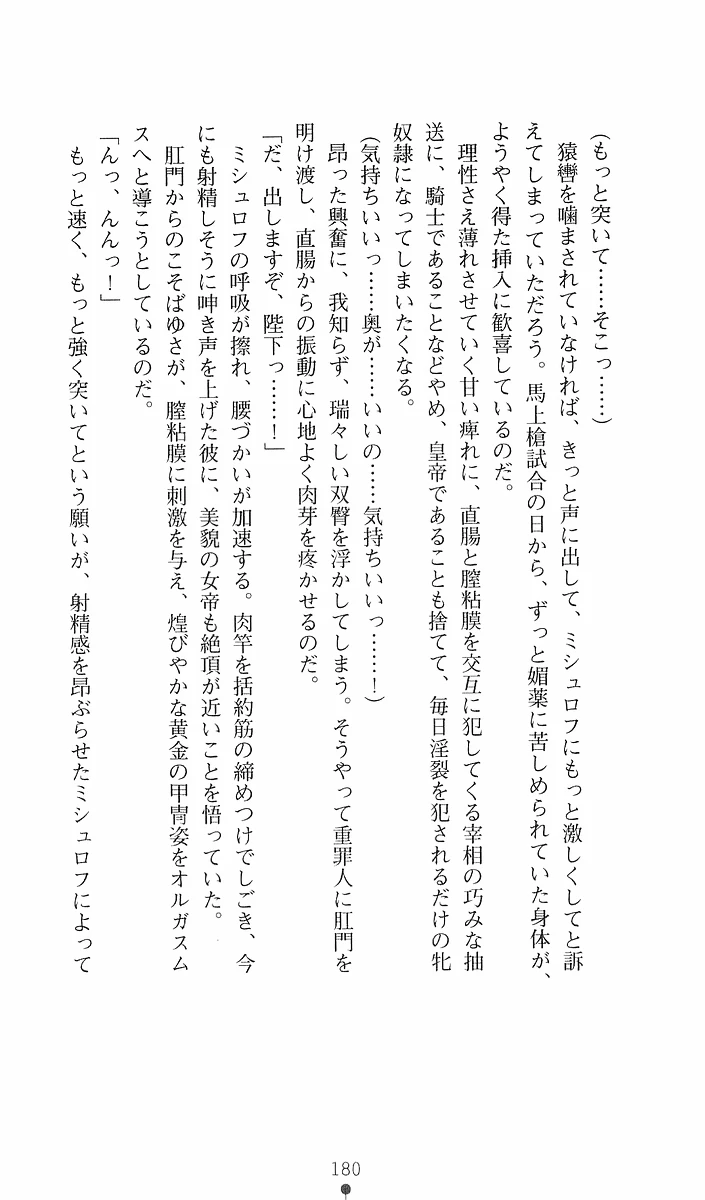 (もっと突いて……そこっ……)
猿轡を噛まされていなければ、きっと声に出して、ミシュロフにもっと激しくしてと訴
えてしまっていただろう。馬上槍試合の日から、ずっと媚薬に苦しめられていた身体が、
ようやく得た挿入に歓喜しているのだ。
理性さえ薄れさせていく甘い痺れに、直腸と膣粘膜を交互に犯してくる宰相の巧みな抽
送に、騎士であることなどやめ、皇帝であることも捨てて、毎日淫裂を犯されるだけの牝
奴隷になってしまいたくなる。
(気持ちいいっ……奥が……いいの……気持ちいいっ……!)
昂った興奮に、我知らず、瑞々しい双臀を浮かしてしまう。そうやって重罪人に肛門を
明け渡し、直腸からの振動に心地よく肉芽を疼かせるのだ。
「だ、出しますぞ、陛下っ……!」
ミシュロフの呼吸が擦れ、腰づかいが加速する。肉竿を括約筋の締めつけでしごき、今
にも射精しそうに呻き声を上げた彼に、美貌の女帝も絶頂が近いことを悟っていた。
肛門からのこそばゆさが、膣粘膜に刺激を与え、煌びやかな黄金の甲冑姿をオルガスム
スへと導こうとしているのだ。
「んっ、んんっ!」
もっと速く、もっと強く突いてという願いが、射精感を昂ぶらせたミシュロフによって
180